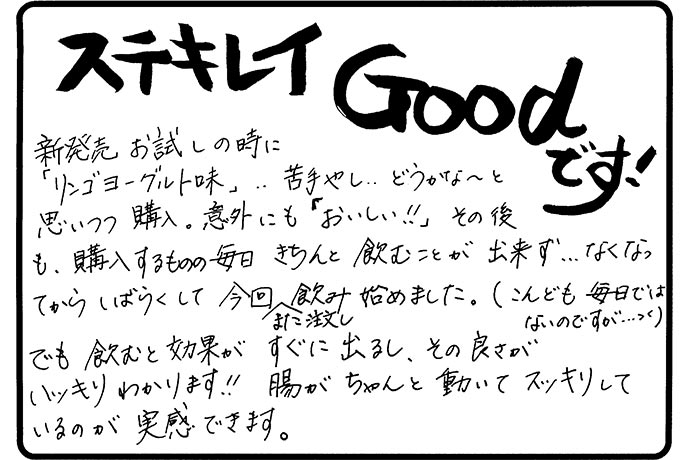 ステキレイ Good です!
新発売 お試しの時に
「リンゴヨーグルト味」‥苦手やし‥どうかな〜と
思いつつ 購入。意外にも「おいしい!!」その後
も、購入するものの毎日 きちんと 飲むことが 出来ず…なくなっ
てから しばらくして 今回 また注文し 飲み 始めました。(こんども 毎日では
ないのですが…つく)
でも 飲むと 効果が すぐに 出るし、その良さが
ハッキリ わかります!! 腸が ちゃんと 動いて スッキリして
いるのが 実感できます。